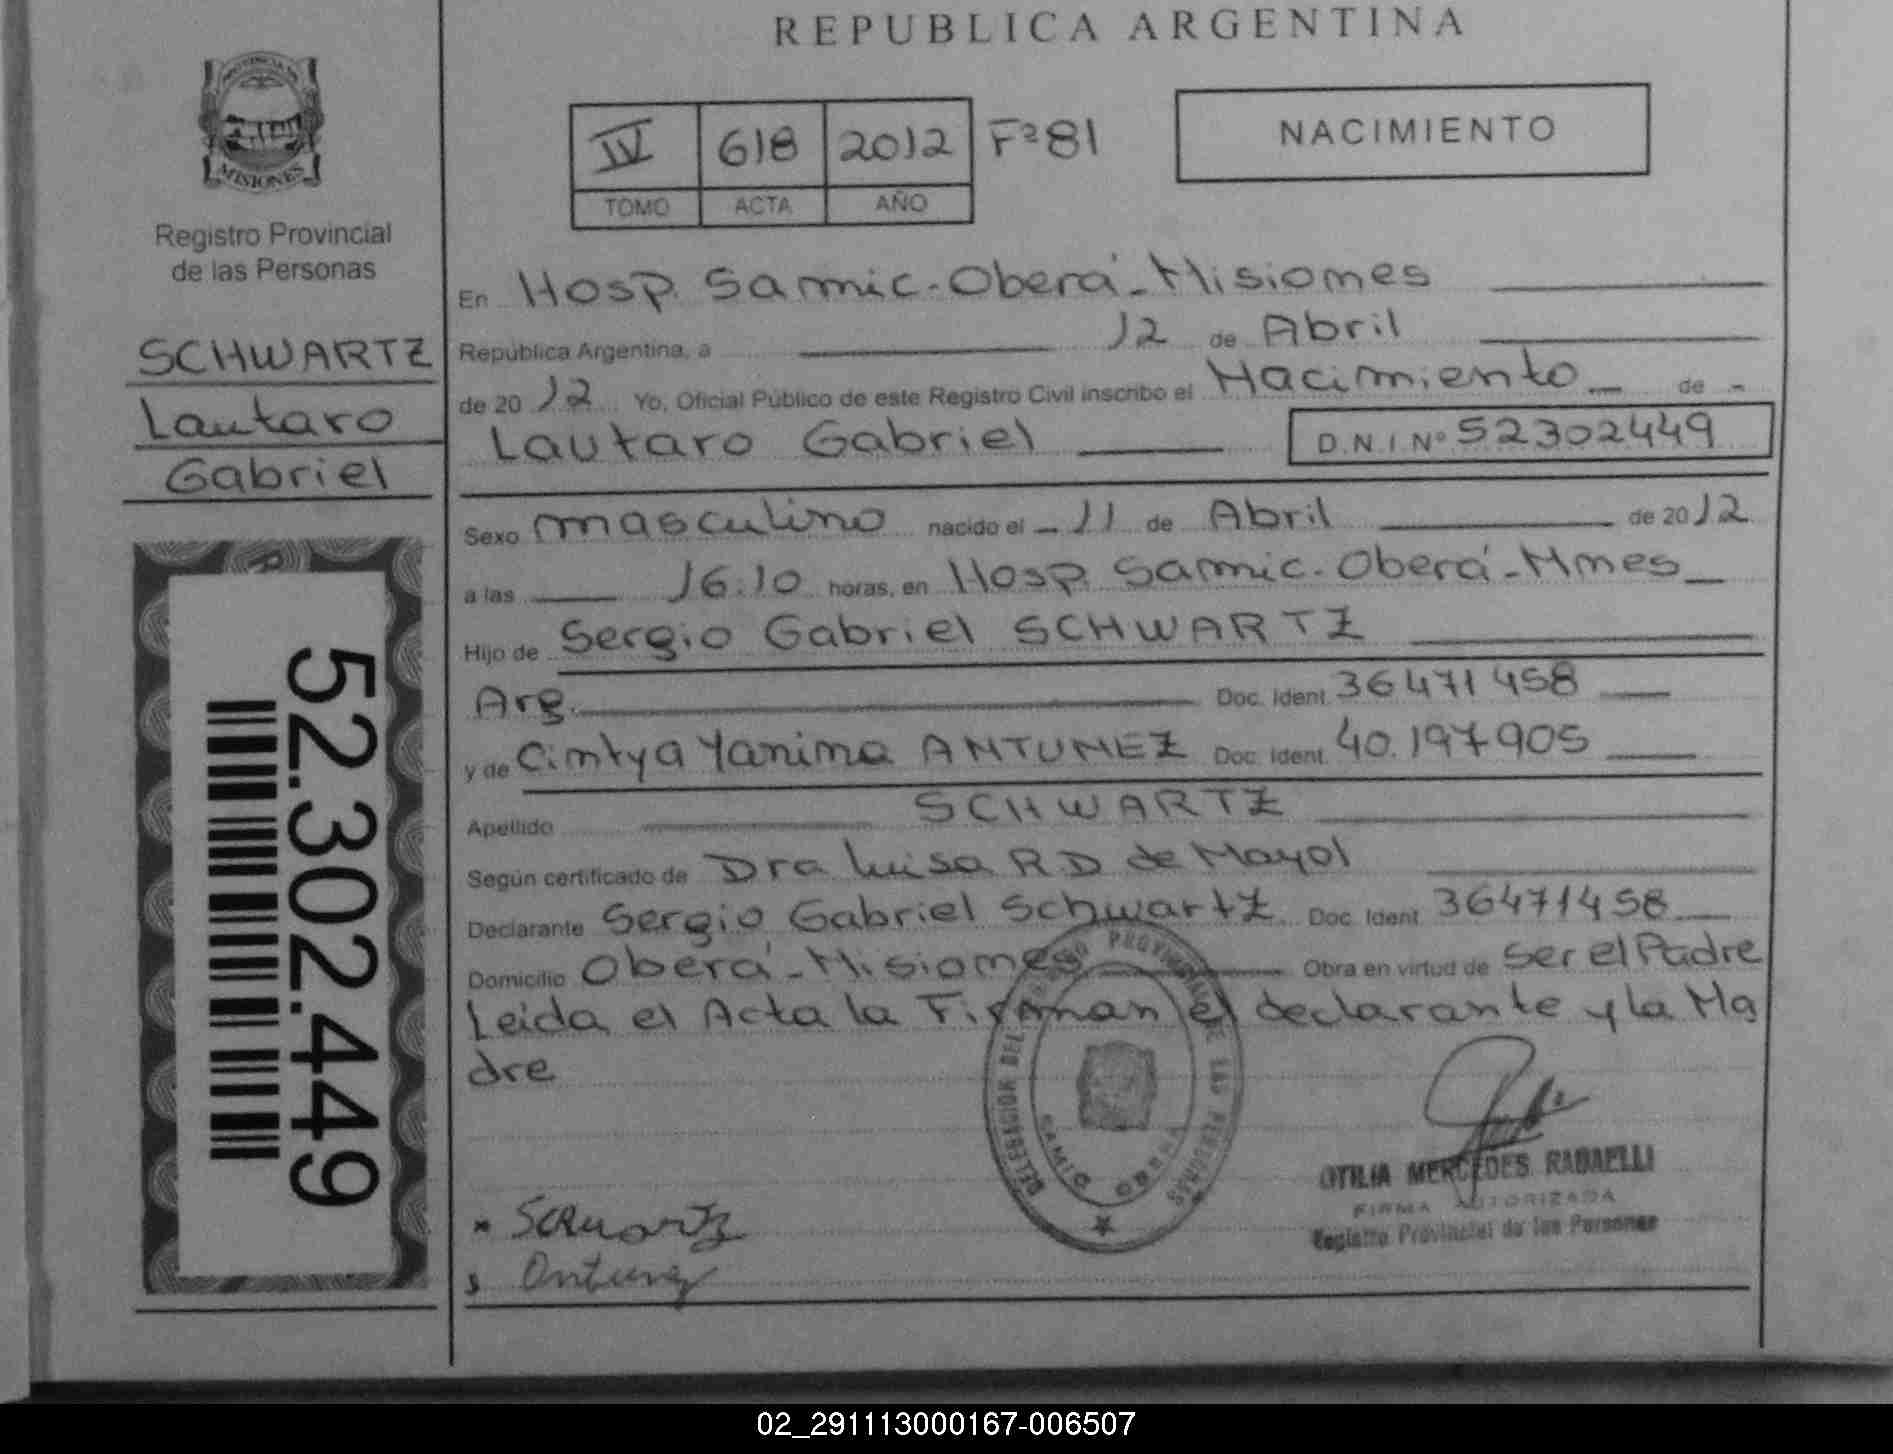 REPUBLICA ARGENTINA
PROVINCIA DE
MISIONES
Registro Provincial
de las Personas
SCHWARTZ
Lautaro
Gabriel
52.302.449
IV 618 2012 Fº81
TOMO ACTA AÑO
NACIMIENTO
En Hosp. Samic-Oberá-Misiones
República Argentina, a 12 de Abril
de 2012 Yo, Oficial Público de este Registro Civil inscribo el Nacimiento de
Lautaro Gabriel D.N.I Nº 52302449
Sexo masculino nacido el 11 de Abril de 2012
a las 16:10 horas, en Hosp. Samic-Oberá-Mnes
Hijo de Sergio Gabriel SCHWARTZ
Arg. Doc. Ident. 36471458
y de Cintya Yanina ANTUNEZ Doc. Ident. 40.197905
Apellido SCHWARTZ
Según certificado de Dra Luisa R.D de Mayol
Declarante Sergio Gabriel Schwartz Doc. Ident 36471458
Domicilio Oberá-Misiones Obra en virtud de ser el Padre
Leida el Acta la Firman el declarante y la Ma
dre
DELEGACION DEL REGISTRO PROVINCIAL DE LAS PERSONAS
SAMIC OBERA
OTILIA MERCEDES RADAELLI
FIRMA AUTORIZADA
Registro Provincial de las Personas
Schwartz
Antunez
02_291113000167-006507